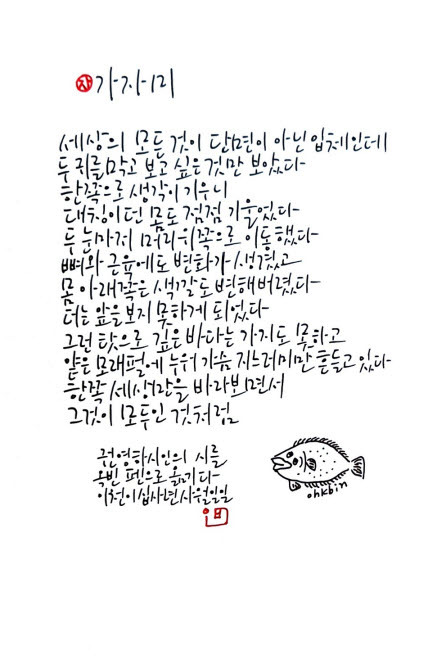 자 가자미
세상의 모든 것이 단면이 아닌 입체인데
두 귀를 막고 보고 싶은 것만 보았다
한쪽으로 생각이 기우니
대칭이던 몸도 점점 기울었다
두 눈마저 머리 위쪽으로 이동했다
뼈와 근육에도 변화가 생겼고
몸 아래쪽은 색깔도 변해버렸다
더는 앞을 보지 못하게 되었다
그런 탓으로 깊은 바다는 가지도 못하고
얕은 모래펄에 누워 가슴 지느러미만 흔들고 있다
한쪽 세상만을 바라보면서
그것이 모두인 것처럼
권영하시인의 시를
옥빈 펜으로 옮기다
이천이십사년사월일일
ohkbin